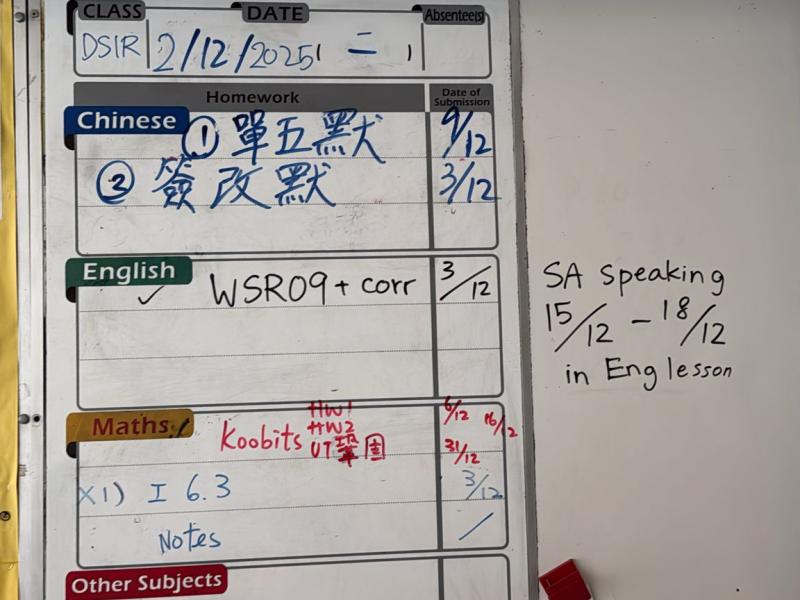 CLASS DATE Absentee(s)
DSIR 2/12/2025 二
Homework Date of Submission
Chinese
① 單五默 9/12
② 簽改默 3/12
English
✓ WSR09 + corr 3/12
SA speaking
15/12 - 18/12
in Eng lesson
Maths
HW1 6/12
Koobits HW2 16/12
UT 31/12
X1) I 6.3 3/12
Notes /
Other Subjects